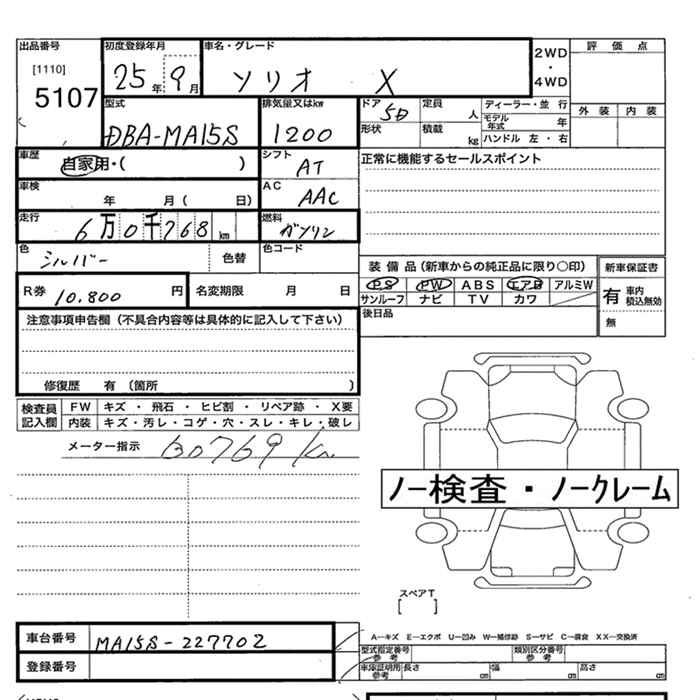 出品番号 初度登録年月 車名・グレード 2WD・4WD 評価点
[1110] 5107 25年 9月 ソリオ X 外装 内装
型式 排気量又はkw ドア 5D 定員 人 ディーラー・並 行
DBA-MA15S 1200 形状 積載 kg モデル年式 年 ハンドル 左・右
車歴 自家用・( ) シフト AT 正常に機能するセールスポイント
車検 年 月( 日) AC AAC
走行 6万0千768km 燃料 ガソリン
色 シルバー 色替 色コード 装備品(新車からの純正品に限り○印) 新車保証書
R券 10.800円 名変期限 月 日 PS PW ABS エアB アルミW 有 車内積込無効
サンルーフ ナビ TV カワ 無
注意事項申告欄(不具合内容等は具体的に記入して下さい) 後日品
修復歴 有(箇所 )
検査員記入欄 FW キズ・飛石・ヒビ割・リペア跡・X要
内装 キズ・汚レ・コゲ・穴・スレ・キレ・破レ
メーター指示 60769 km
ノー検査・ノークレーム
スペアT
[ ]
車台番号 MA15S-227702 A―キズ E―エクボ U―凹み W―補修跡 S―サビ C―腐食 XX―交換済
型式指定番号参考 類別区分番号参考
登録番号 車庫証明用参考 長さ cm 幅 cm 高さ cm